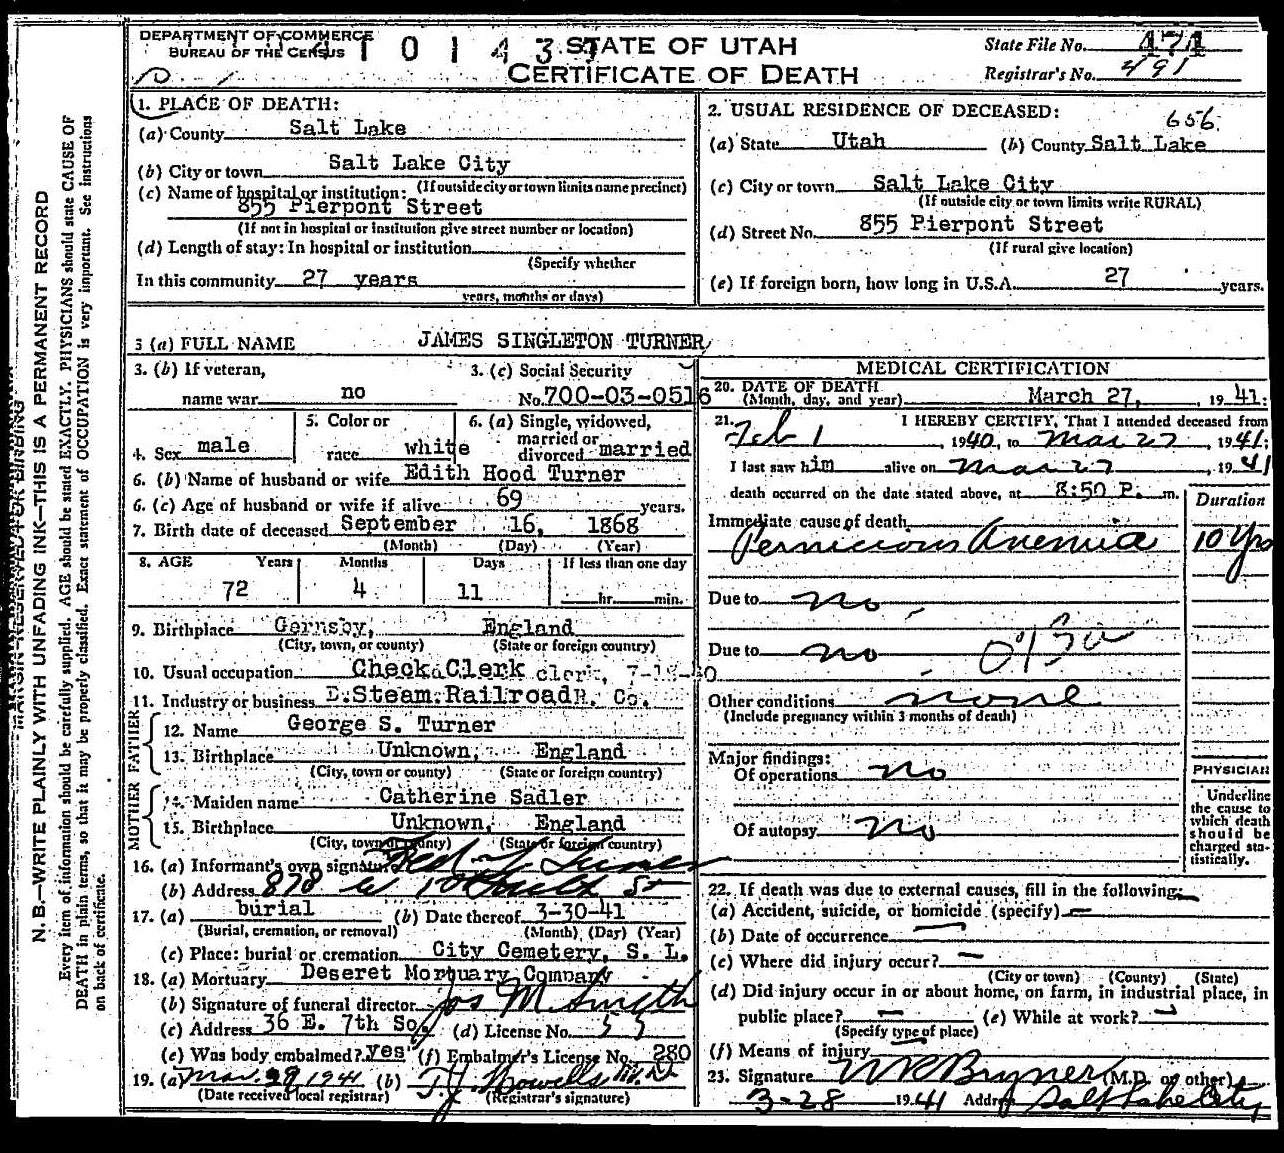 DEPARTMENT OF COMMERCE
BUREAU OF THE CENSUS
4101437
STATE OF UTAH
CERTIFICATE OF DEATH
State File No. 474
Registrar's No. 491
1. PLACE OF DEATH:
(a) County Salt Lake
(b) City or town Salt Lake City
(If outside city or town limits name precinct)
(c) Name of hospital or institution:
855 Pierpont Street
(If not in hospital or institution give street number or location)
(d) Length of stay: In hospital or institution
(Specify whether
In this community 27 years
years, months or days)
2. USUAL RESIDENCE OF DECEASED:
656
(a) State Utah (b) County Salt Lake
(c) City or town Salt Lake City
(If outside city or town limits write RURAL)
(d) Street No. 855 Pierpont Street
(If rural give location)
(e) If foreign born, how long in U.S.A. 27 years.
3 (a) FULL NAME JAMES SINGLETON TURNER
3. (b) If veteran,
name war no
3. (c) Social Security
No. 700-03-0516
4. Sex male
5. Color or
race white
6. (a) Single, widowed,
married or
divorced married
6. (b) Name of husband or wife Edith Hood Turner
6. (c) Age of husband or wife if alive 69 years.
7. Birth date of deceased September 16, 1868
(Month) (Day) (Year)
8. AGE Years Months Days If less than one day
72 4 11 hr. min.
9. Birthplace Gornsby, England
(City, town, or county) (State or foreign country)
10. Usual occupation Check Clerk clerk, 7-18-40
11. Industry or business Steam Railroad R. Co.
FATHER
12. Name George S. Turner
13. Birthplace Unknown, England
(City, town or county) (State or foreign country)
MOTHER
14. Maiden name Catherine Sadler
15. Birthplace Unknown, England
(City, town or county) (State or foreign country)
16. (a) Informant's own signature Turner
(b) Address 878 W St
17. (a) burial (b) Date thereof 3-30-41
(Burial, cremation, or removal) (Month) (Day) (Year)
(c) Place: burial or cremation City Cemetery, S. L.
18. (a) Mortuary Deseret Mortuary Company
(b) Signature of funeral director Jos M. Smith
(c) Address 36 E. 7th So. (d) License No. 55
(e) Was body embalmed? yes (f) Embalmer's License No. 280
19. (a) Mar. 29, 1941 (b) T. J. Howells M.D.
(Date received local registrar) (Registrar's signature)
MEDICAL CERTIFICATION
20. DATE OF DEATH
(Month, day, and year) March 27, , 1941.
21. I HEREBY CERTIFY, That I attended deceased from
Feb 1 , 1940, to Mar 27 , 1941;
I last saw him alive on Mar 27 , 1941
death occurred on the date stated above, at 8:50 P. m.
Duration
Immediate cause of death
Pernicious Anemia 10 yrs
Due to no
Due to no
Other conditions none
(Include pregnancy within 3 months of death)
Major findings:
Of operations no
Of autopsy no
PHYSICIAN
Underline
the cause to
which death
should be
charged sta-
tistically.
22. If death was due to external causes, fill in the following:
(a) Accident, suicide, or homicide (specify)
(b) Date of occurrence
(c) Where did injury occur?
(City or town) (County) (State)
(d) Did injury occur in or about home, on farm, in industrial place, in
public place? (e) While at work?
(Specify type of place)
(f) Means of injury
23. Signature W R Bryner (M.D. or other)
3-28 1941 Address Salt Lake City
MARGIN RESERVED FOR BINDING
N. B.—WRITE PLAINLY WITH UNFADING INK—THIS IS A PERMANENT RECORD
Every item of information should be carefully supplied. AGE should be stated EXACTLY. PHYSICIANS should state CAUSE OF
DEATH in plain terms, so that it may be properly classified. Exact statement of OCCUPATION is very important. See instructions
on back of certificate.